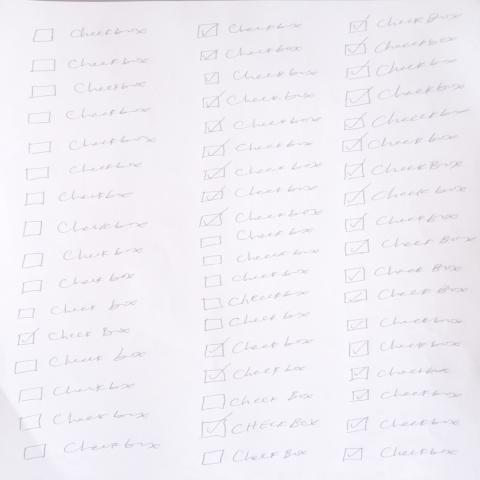 Checkbox
Checkbox
Checkbox
Checkbox
Checkbox
Checkbox
Checkbox
Checkbox
Check box
Check box
Check box
Check Box
Check box
Check box
Check box
Checkbox
Checkbox
Checkbox
Checkbox
Checkbox
Checkbox
Checkbox
Checkbox
Checkbox
Checkbox
Check box
Checkbox
Checkbox
Checkbox
Check box
Check box
Check box
Check Box
CHECKBOX
Check Box
Check Box
Checkbox
Check box
Checkbox
Checkbox
Check box
Check Box
Check box
Check Box
Check Box
Check Box
Check Box
Checkbox
Check box
Checkbox
Checkbox
Checkbox
Checkbox